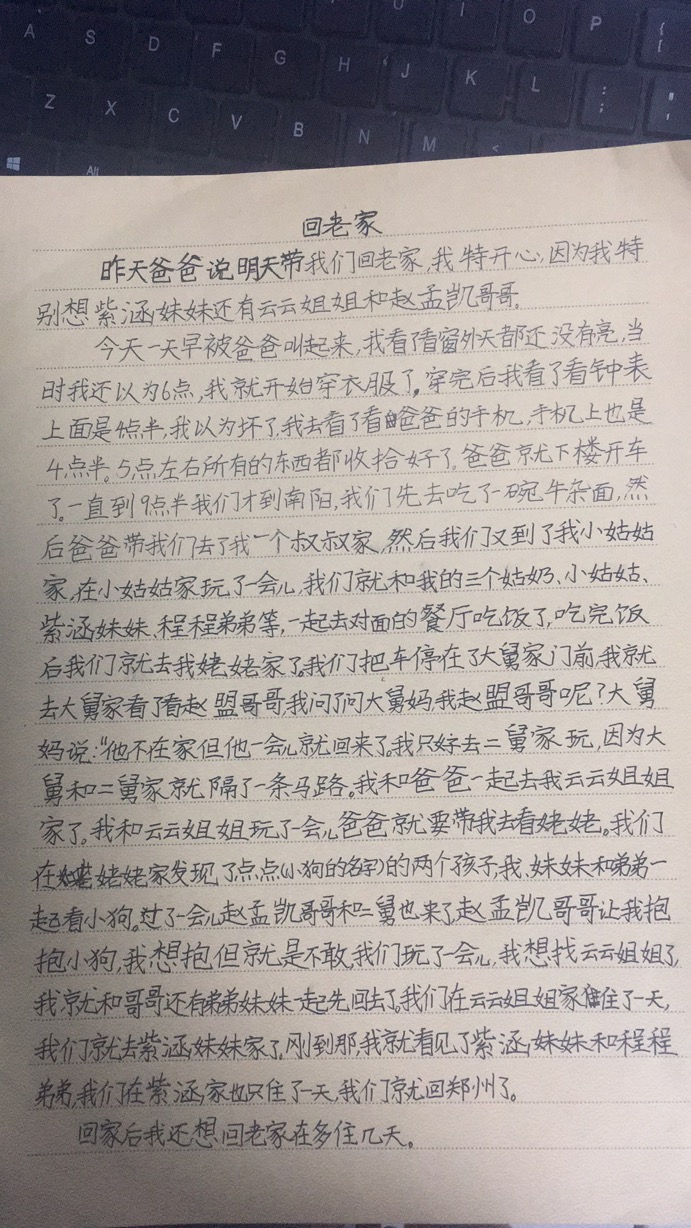 A S D F G H J K L : ;
U I O P { [
Z X C V B N M <
Alt
回老家
昨天爸爸说明天带我们回老家,我特开心,因为我特
别想紫涵妹妹还有云云姐姐和赵孟凯哥哥。
今天一天早被爸爸叫起来,我看了看窗外天都还没有亮,当
时我还以为6点,我就开始穿衣服了。穿完后我看了看钟表
上面是4点半,我以为坏了,我去看了看爸爸的手机,手机上也是
4点半。5点左右所有的东西都收拾好了。爸爸就下楼开车
了。一直到9点半我们才到南阳,我们先去吃了一碗牛杂面,然
后爸爸带我们去了我一个叔叔家,然后我们又到了我小姑姑
家,在小姑姑家玩了一会儿,我们就和我的三个姑奶、小姑姑、
紫涵妹妹、程程弟弟等,一起去对面的餐厅吃饭了,吃完饭
后我们就去我姥姥家了。我们把车停在了大舅家门前,我就
去大舅家看了看赵盟哥哥,我问了问大舅妈,我赵盟哥哥呢?大舅
妈说:“他不在家但他一会儿就回来了。我只好去二舅家玩,因为大
舅和二舅家就隔了一条马路。我和爸爸一起去我云云姐姐
家了。我和云云姐姐玩了一会儿爸爸就要带我去看姥姥。我们
在姥姥家发现了点点(小狗的名字)的两个孩子,我、妹妹和弟弟一
起看小狗。过了一会儿赵孟凯哥哥和二舅也来了,赵孟凯哥哥让我抱
抱小狗,我想抱但就是不敢,我们玩了一会儿,我想找云云姐姐了,
我就和哥哥还有弟弟妹妹一起先回去了。我们在云云姐姐家住了一天,
我们就去紫涵妹妹家了。刚到那,我就看见了紫涵妹妹和程程
弟弟,我们在紫涵家也只住了一天,我们就回郑州了。
回家后我还想回老家在多住几天。